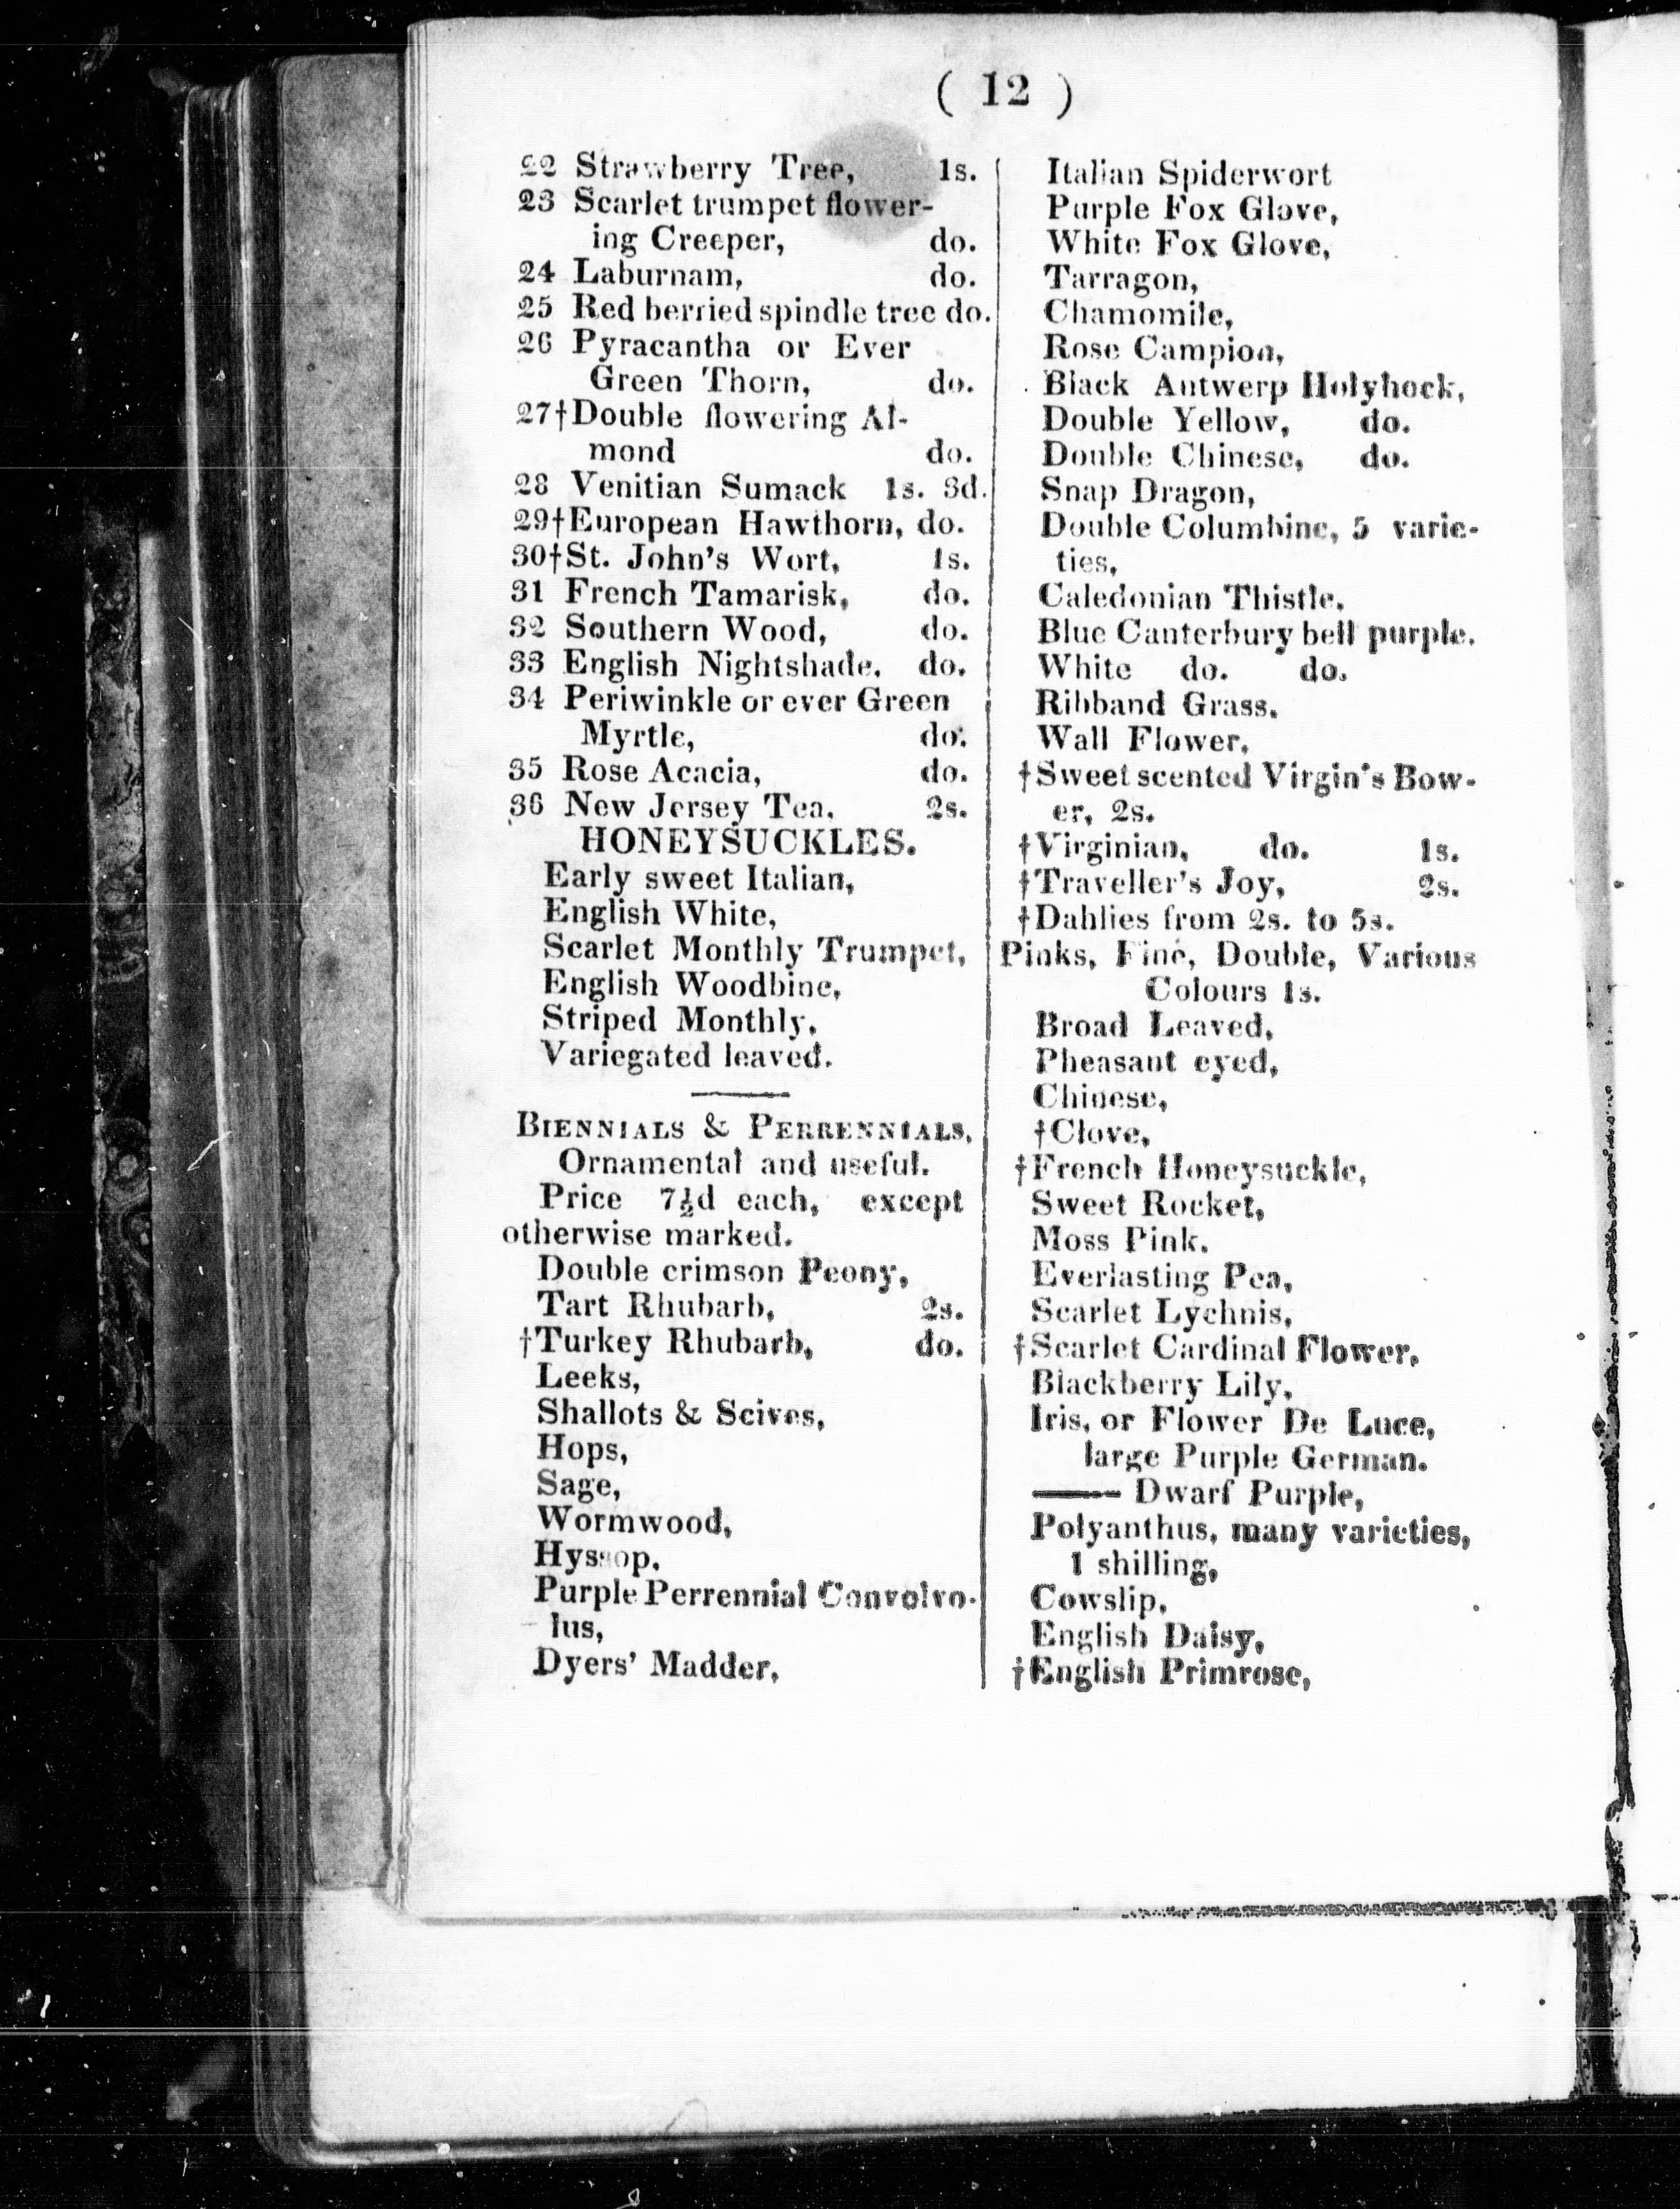 ( 12 )
22 Strawberry Tree, 1s.
23 Scarlet trumpet flower-
ing Creeper, do.
24 Laburnam, do.
25 Red berried spindle tree do.
26 Pyracantha or Ever
Green Thorn, do.
27†Double flowering Al-
mond do.
28 Venitian Sumack 1s. 3d.
29†European Hawthorn, do.
30†St. John's Wort, 1s.
31 French Tamarisk, do.
32 Southern Wood, do.
33 English Nightshade, do.
34 Periwinkle or ever Green
Myrtle, do.
35 Rose Acacia, do.
36 New Jersey Tea. 2s.
HONEYSUCKLES.
Early sweet Italian,
English White,
Scarlet Monthly Trumpet,
English Woodbine,
Striped Monthly,
Variegated leaved.
BIENNIALS & PERRENNIALS,
Ornamental and useful.
Price 7½d each, except
otherwise marked.
Double crimson Peony,
Tart Rhubarb, 2s.
†Turkey Rhubarb, do.
Leeks,
Shallots & Scives,
Hops,
Sage,
Wormwood,
Hyssop,
Purple Perrennial Convolvo-
lus,
Dyers' Madder,
Italian Spiderwort
Purple Fox Glove,
White Fox Glove,
Tarragon,
Chamomile,
Rose Campion,
Black Antwerp Holyhock,
Double Yellow, do.
Double Chinese, do.
Snap Dragon,
Double Columbine, 5 varie-
ties,
Caledonian Thistle,
Blue Canterbury bell purple.
White do. do.
Ribband Grass.
Wall Flower,
†Sweet scented Virgin's Bow-
er, 2s.
†Virginian, do. 1s.
†Traveller's Joy, 2s.
†Dahlies from 2s. to 5s.
Pinks, Fine, Double, Various
Colours 1s.
Broad Leaved,
Pheasant eyed,
Chinese,
†Clove,
†French Honeysuckle,
Sweet Rocket,
Moss Pink.
Everlasting Pea,
Scarlet Lychnis,
†Scarlet Cardinal Flower,
Blackberry Lily,
Iris, or Flower De Luce,
large Purple German.
—— Dwarf Purple,
Polyanthus, many varieties,
1 shilling,
Cowslip,
English Daisy,
†English Primrose,